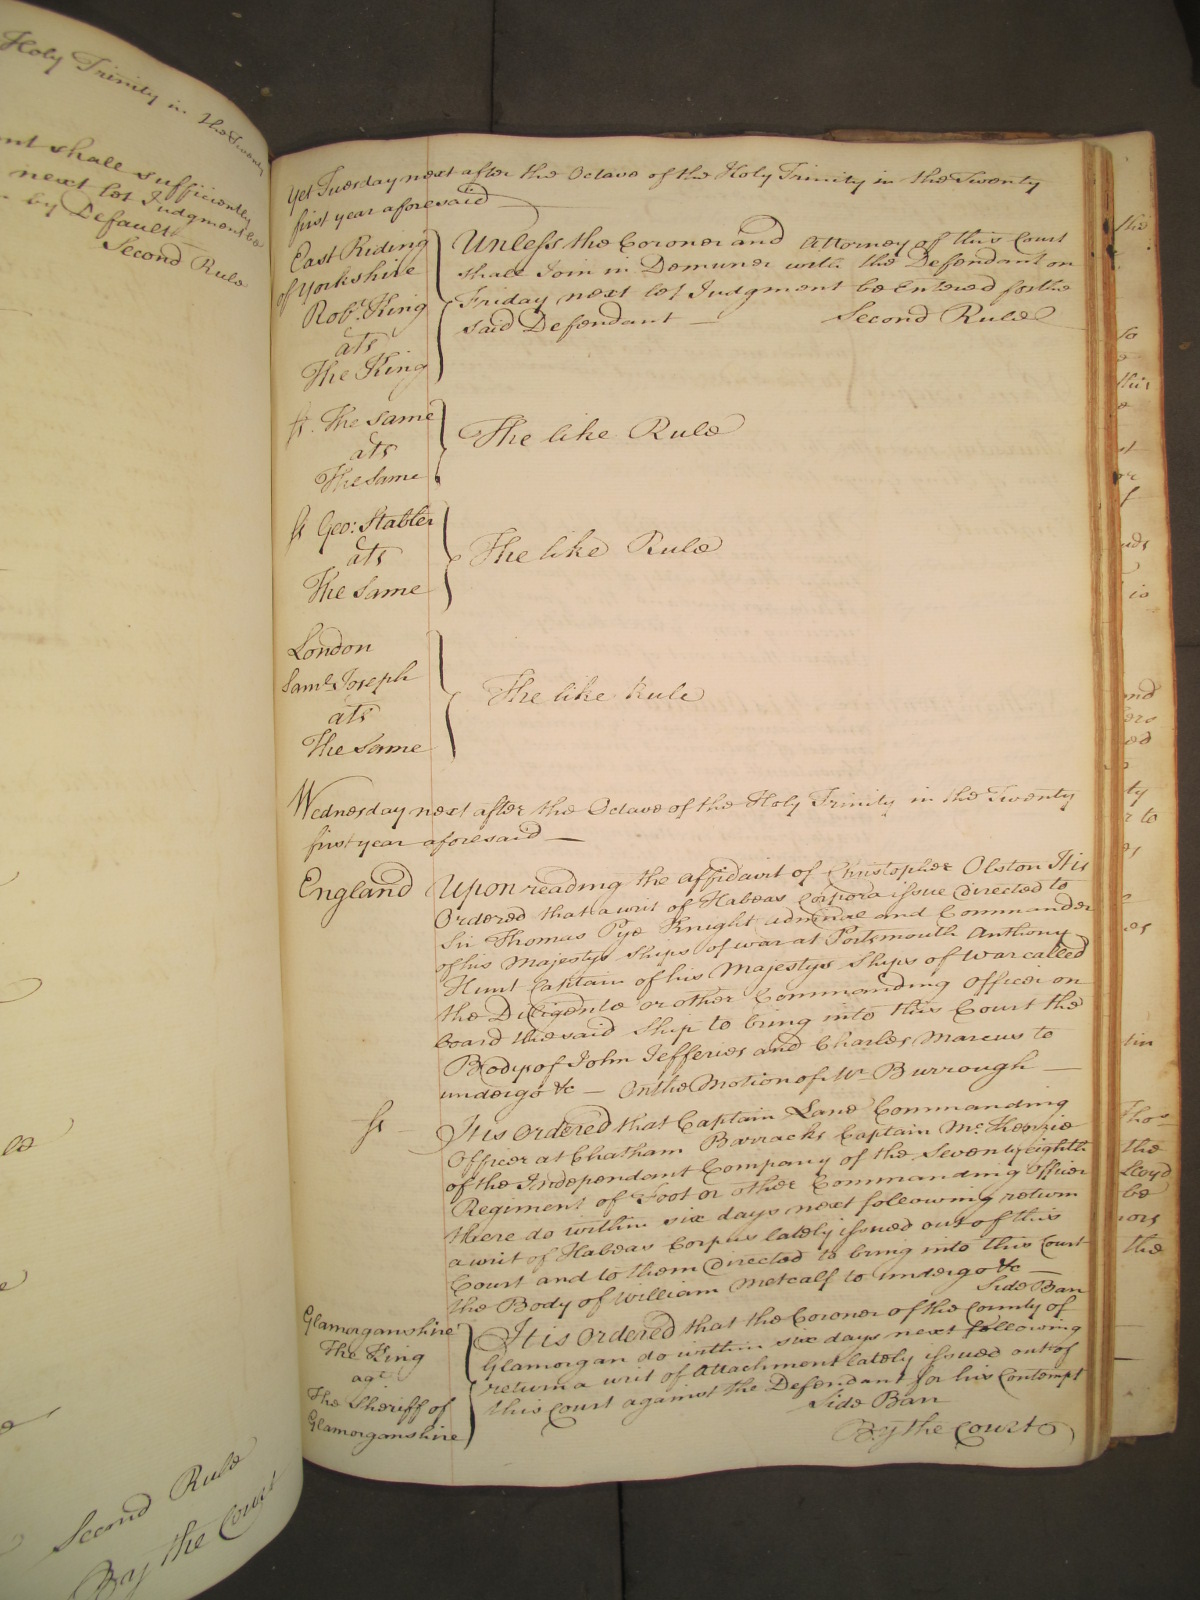 Holy Trinity in the Twenty
nt shall sufficiently
next let Judgment be
by Default
Second Rule
Second Rule
By the Court
Yet Tuesday next after the Octave of the Holy Trinity in the Twenty
first year aforesaid
East Riding
of Yorkshire
Robt. King
ats
The King
Unless the Coroner and Attorney of this Court
shall Join in Demurrer with the Defendant on
Friday next let Judgment be Entered for the
said Defendant — Second Rule
ss. The same
ats
The same
The like Rule
ss Geo: Stabler
ats
The same
The like Rule
London
Saml. Joseph
ats
The same
The like Rule
Wednesday next after the Octave of the Holy Trinity in the Twenty
first year aforesaid —
England
Upon reading the affidavit of Christopher Olston It is
Ordered that a writ of Habeas Corpora issue Directed to
Sir Thomas Pye Knight admiral and Commander
of his Majestys Ships of war at Portsmouth Anthony
Hunt Captain of his Majestys Ships of War called
the Diligente or other Commanding Officer on
board the said Ship to bring into this Court the
Body of John Jefferies and Charles Marcus to
undergo &c — On the Motion of Mr Burrough —
ss
It is Ordered that Captain Lane Commanding
Officer at Chatham Barracks Captain McKenzie
of the Independant Company of the Seventy eighth
Regiment of Foot or other Commanding Officer
there do within six days next following return
a writ of Habeas Corpus lately issued out of this
Court and to them Directed to bring into this Court
the Body of William Metcalf to undergo &c —
Side Bar
Glamorganshire
The King
agt
The Sheriff of
Glamorganshire
It is Ordered that the Coroner of the County of
Glamorgan do within six days next following
return a writ of Attachment lately issued out of
this Court against the Defendant for his Contempt
Side Bar
By the Court